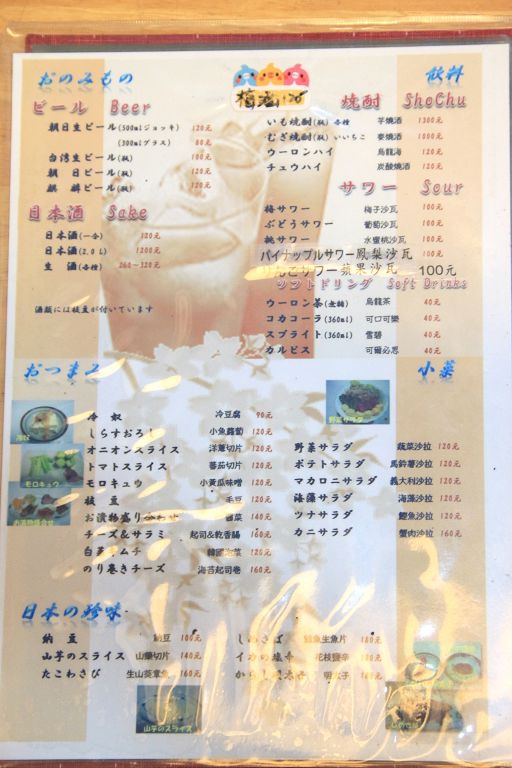 おのみもの
飲料
ビール Beer
朝日生ビール(500mlジョッキ) 120元
(300mlグラス) 80元
台湾生ビール(瓶) 100元
朝日ビール(瓶) 120元
麒麟ビール(瓶) 120元
日本酒 Sake
日本酒(一合) 120元
日本酒(2.0L) 1200元
生酒(各種) 260~320元
酒類には枝豆が付いています
焼酎 ShoChu
いも焼酎(瓶)各種 芋燒酒 1300元
むぎ焼酎(瓶)いいちこ 麥燒酒 1000元
ウーロンハイ 烏龍海 120元
チュウハイ 炭酸燒酒 120元
サワー Sour
梅サワー 梅子沙瓦 100元
ぶどうサワー 葡萄沙瓦 100元
桃サワー 水蜜桃沙瓦 100元
パイナップルサワー鳳梨沙瓦 100元
りんごサワー蘋果沙瓦 100元
ソフトドリンク Soft Drinks
ウーロン茶(無糖) 烏龍茶 40元
コカコーラ(360ml) 可口可樂 40元
スプライト(360ml) 雪碧 40元
カルピス 可爾必思 40元
おつまみ
小菜
冷奴 冷豆腐 90元
しらすおろし 小魚蘿蔔 120元
オニオンスライス 洋蔥切片 120元
トマトスライス 蕃茄切片 140元
モロキュウ 小黃瓜味噌 120元
枝豆 毛豆 120元
お漬物盛り合わせ 醬菜 140元
チーズ&サラミ 起司&乾香腸 180元
白菜キムチ 韓國泡菜 120元
のり巻きチーズ 海苔起司卷 160元
野菜サラダ 蔬菜沙拉 120元
ポテトサラダ 馬鈴薯沙拉 120元
マカロニサラダ 義大利沙拉 120元
海藻サラダ 海藻沙拉 120元
ツナサラダ 鮪魚沙拉 120元
カニサラダ 蟹肉沙拉 160元
野菜サラダ
冷奴
モロキュウ
お漬物盛合せ
日本の珍味
納豆 納豆 100元
山芋のスライス 山藥切片 140元
たこわさび 生山葵章魚 160元
しめさば 鯖魚生魚片 180元
イカの塩辛 花枝鹽辛 160元
山芋のスライス